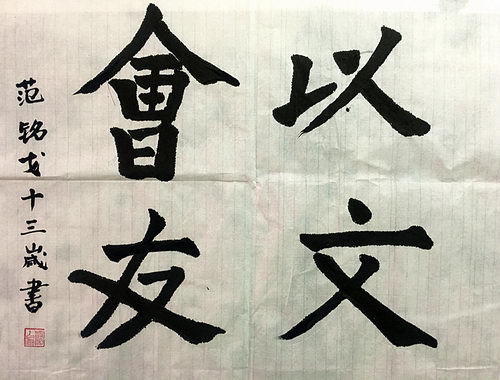 以文
會友
范铭戈十三歲書